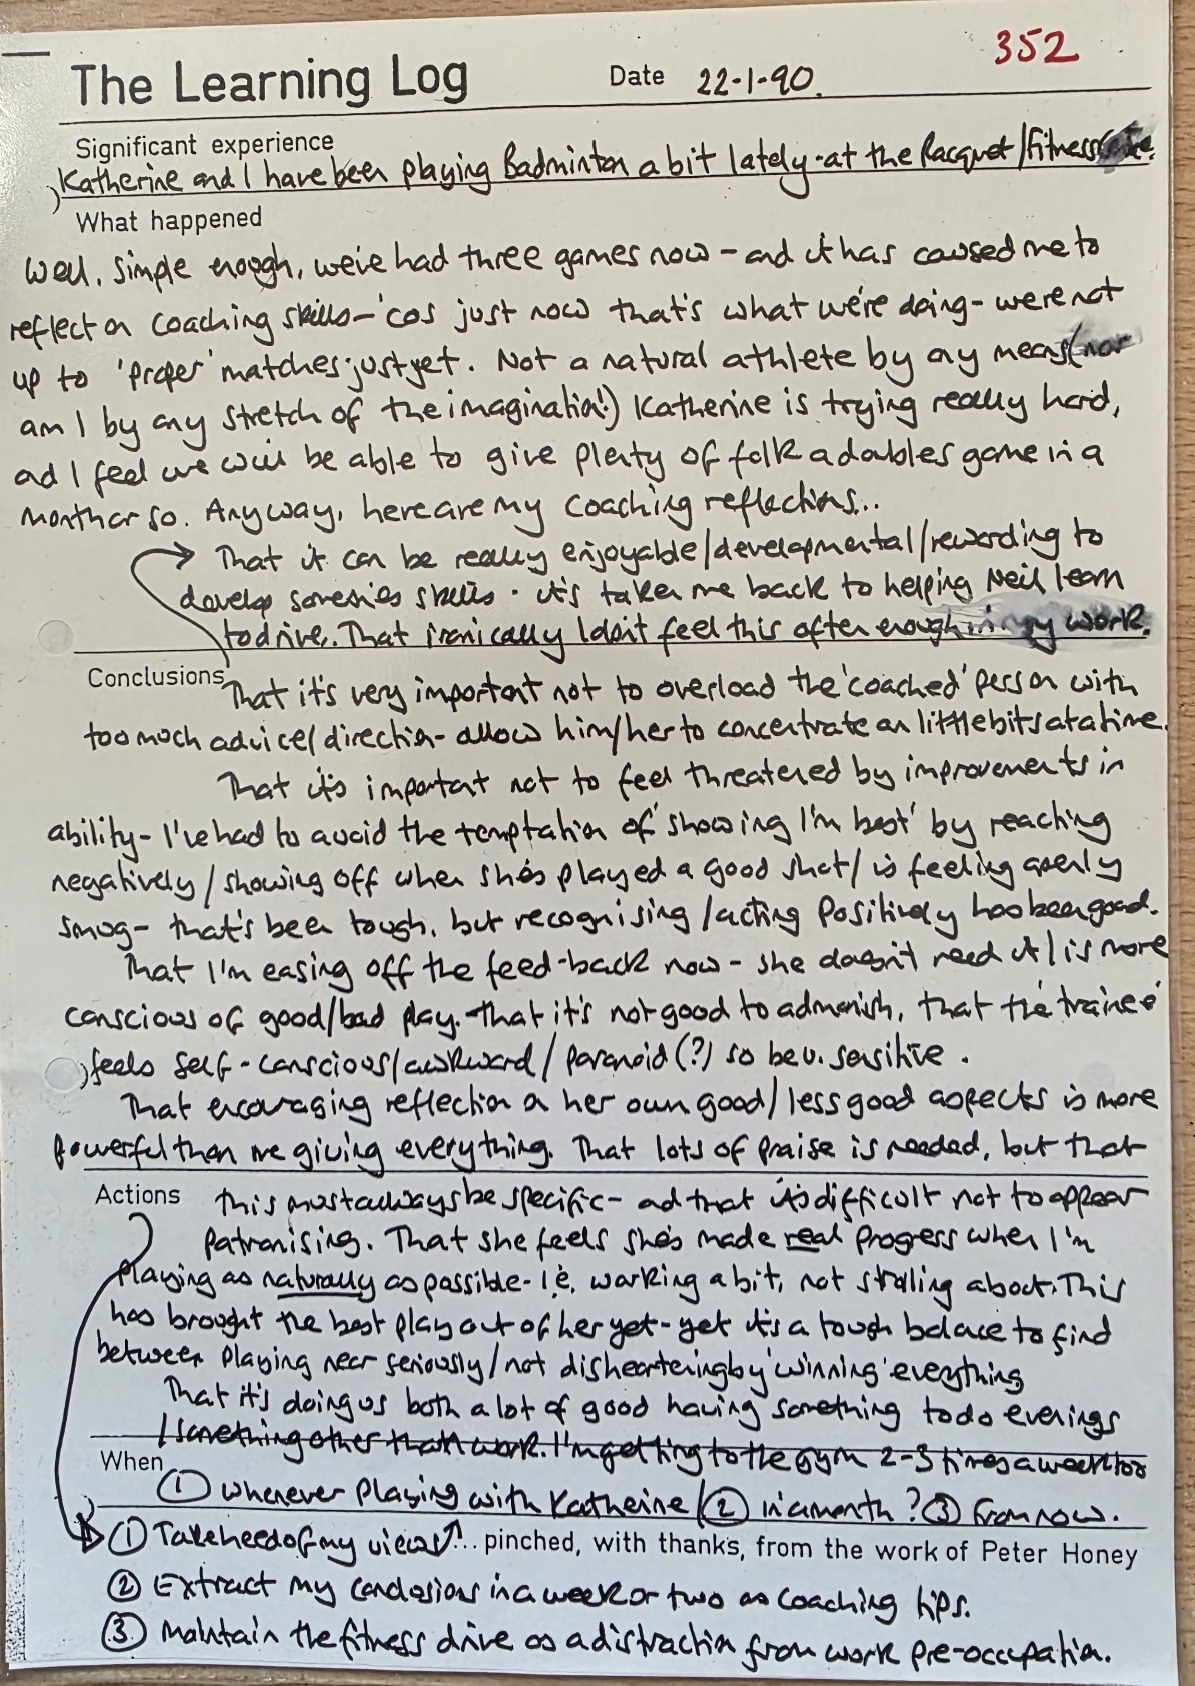 352
The Learning Log Date 22-1-90.
Significant experience
Katherine and I have been playing Badminton a bit lately - at the Racquet/Fitness Centre.
What happened
Well. Simple enough, we've had three games now - and it has caused me to
reflect on coaching skills - 'cos just now that's what we're doing - were not
up to 'proper' matches just yet. Not a natural athlete by any means (nor
am I by any stretch of the imagination!) Katherine is trying really hard,
and I feel we will be able to give plenty of folk a doubles game in a
month or so. Anyway, here are my coaching reflections...
That it can be really enjoyable/developmental/rewarding to
develop someones skills. it's taken me back to helping Neil learn
to drive. That ironically I don't feel this often enough in my work.
Conclusions That it's very important not to overload the 'coached' person with
too much advice/direction - allow him/her to concentrate on little bits at a time.
That it's important not to feel threatened by improvements in
ability - I've had to avoid the temptation of 'showing I'm best' by reacting
negatively/showing off when she's played a good shot/is feeling overly
smug - that's been tough, but recognising/acting positively has been good.
That I'm easing off the feed-back now - she doesn't need it/is more
conscious of good/bad play. That it's not good to admonish, that the 'trainee'
feels self-conscious/awkward/paranoid(?) so be v. sensitive.
That encouraging reflection on her own good/less good aspects is more
powerful than me giving everything. That lots of praise is needed, but that
Actions this must always be specific - and that it's difficult not to appear
patronising. That she feels she's made real progress when I'm
playing as naturally as possible - i.e. working a bit, not strolling about. This
has brought the best play out of her yet - yet it's a tough balance to find
between playing near seriously/not disheartening by 'winning' everything
That it's doing us both a lot of good having something to do evenings
/something other than work. I'm getting to the gym 2-3 times a week too
When
① whenever playing with Katherine/② in a month? ③ From now.
① Take heed of my views ↑... pinched, with thanks, from the work of Peter Honey
② Extract my conclusions in a week or two as coaching tips.
③ Maintain the fitness drive as a distraction from work pre-occupation.